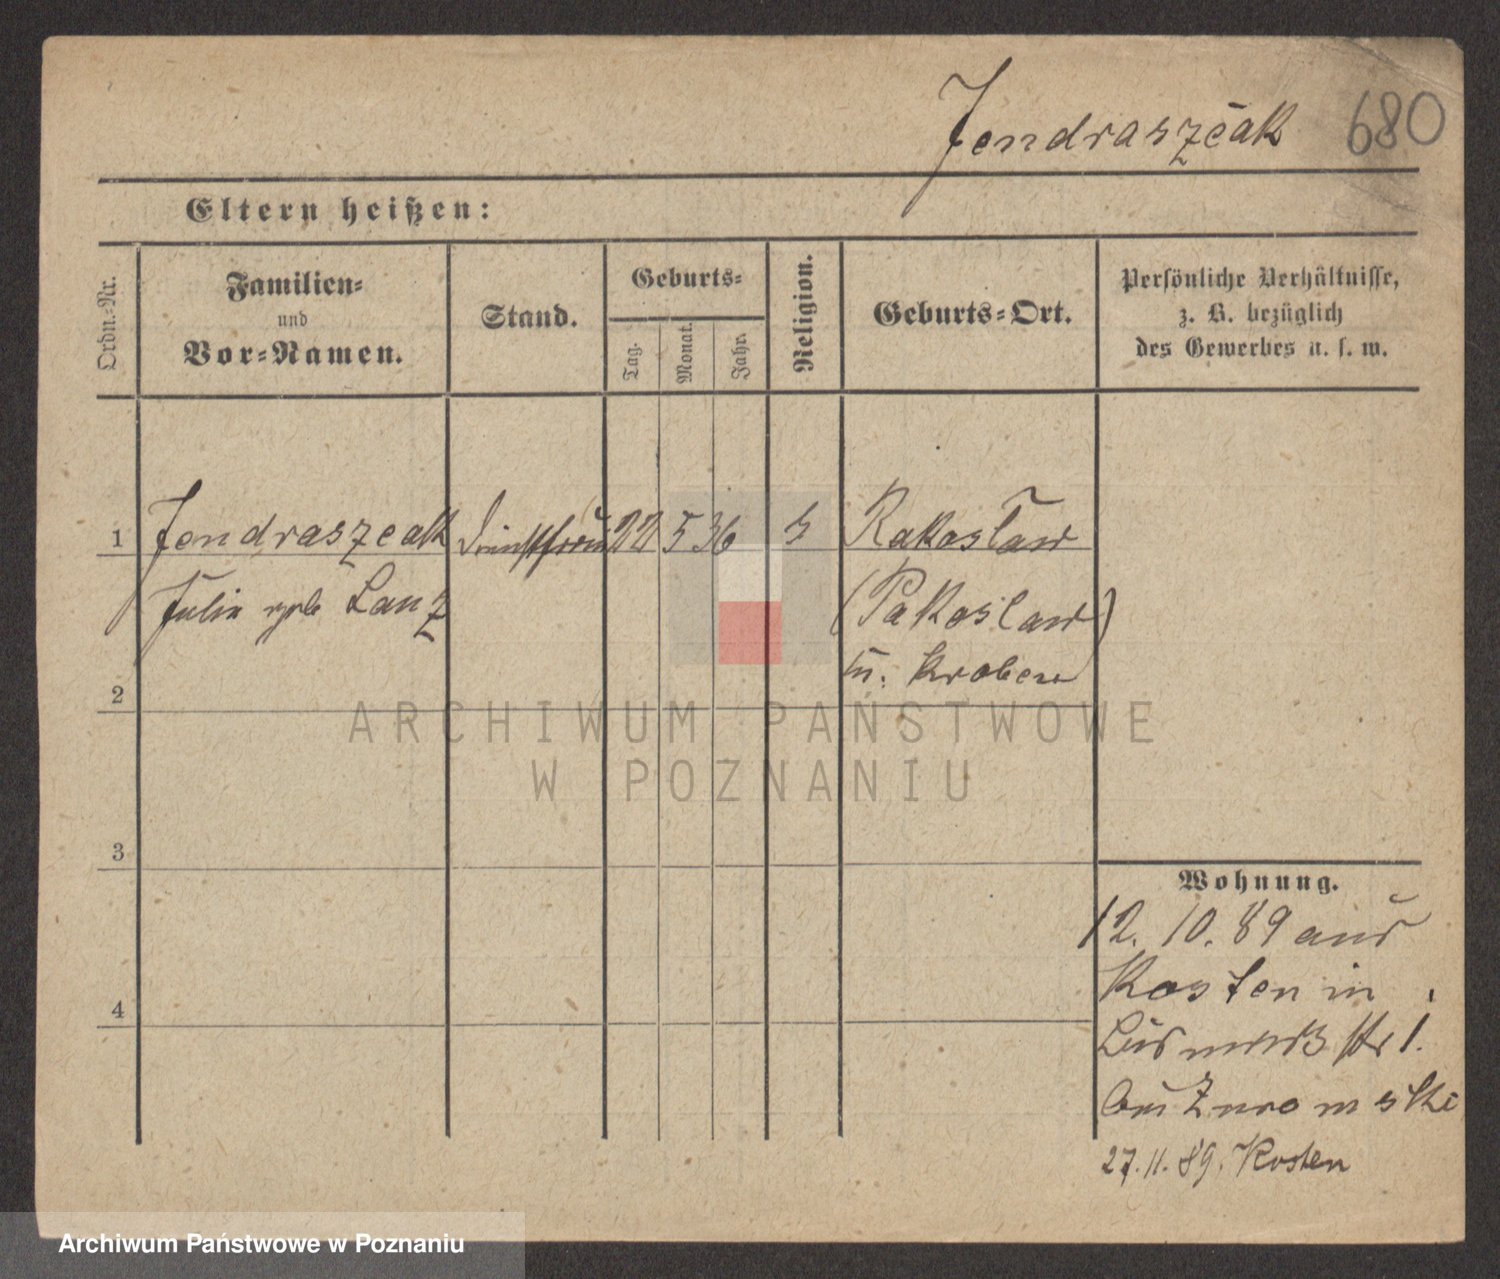 Jendraszčak 680
Eltern heißen:
Ordn.-Nr.
Familien-
und
Vor-Namen.
Stand.
Geburts-
Tag.
Monat.
Jahr.
Religion.
Geburts-Ort.
Persönliche Verhältnisse,
z. B. bezüglich
des Gewerbes u. s. w.
1 Jendraszcak 22 5 36 Rakosław
Julia geb Lanz (Pakoslaw)
2 Kroben
ARCHIWUM PAŃSTWOWE
W POZNANIU
3
Wohnung.
12. 10. 89 aus
Kosten in
4
str 1.
bei
27. 11. 89. Kosten
Archiwum Państwowe w Poznaniu